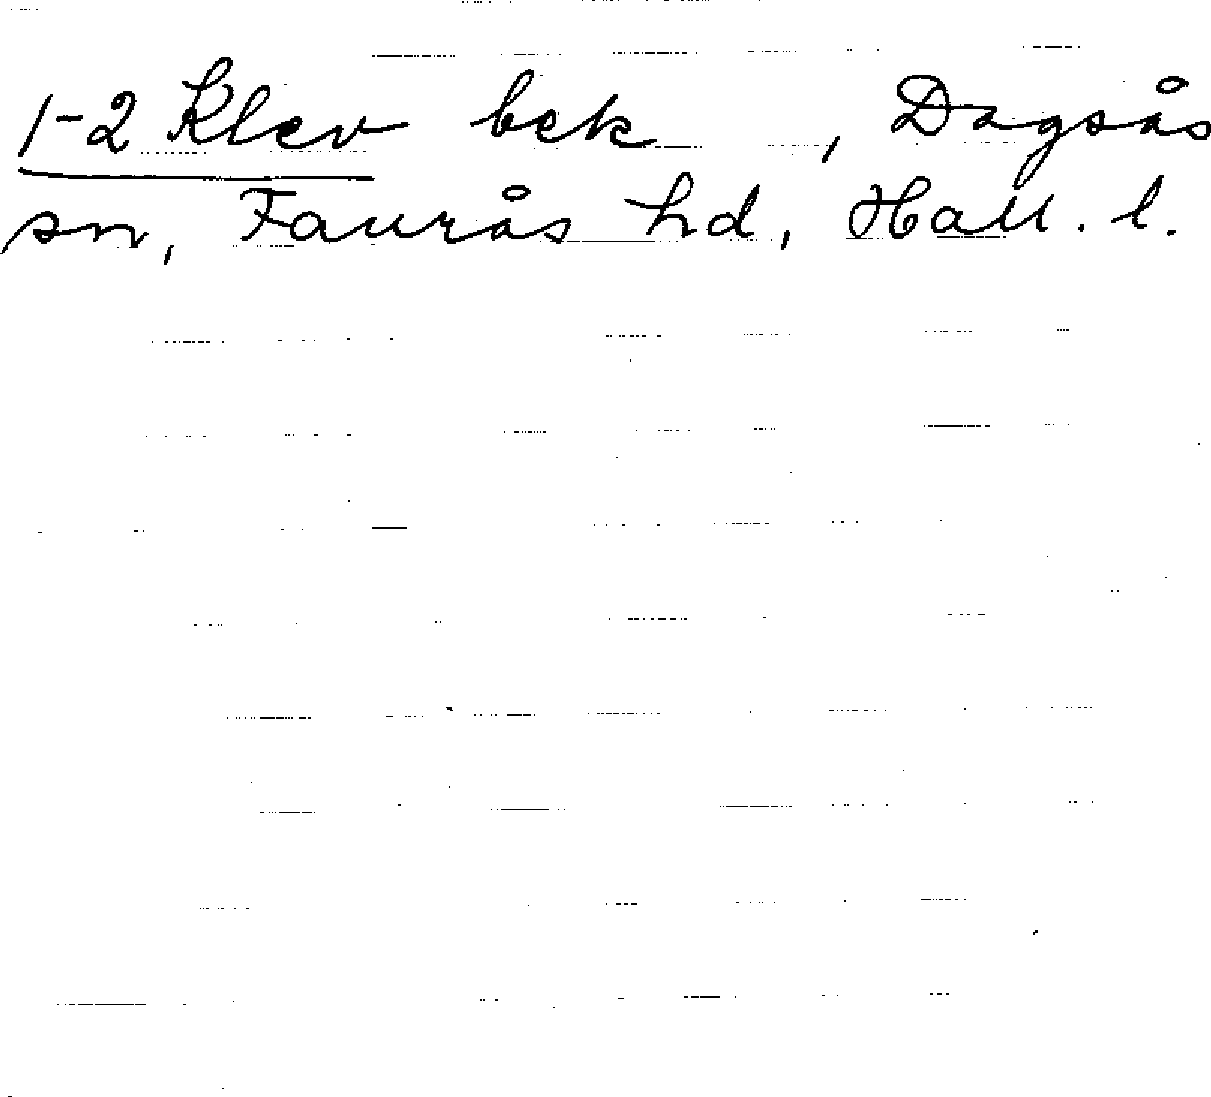 1-2 Klev bek, Dagsås
sn, Faurås hd, Hall. l.